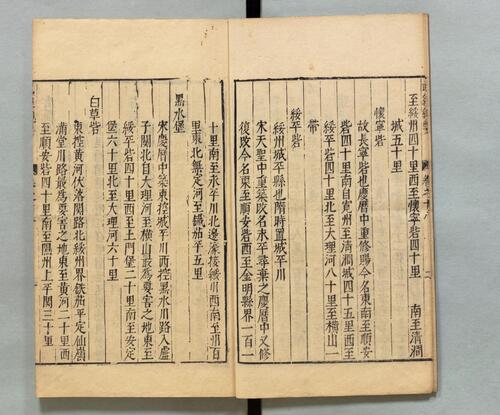 至綏州四十里西至懷寧砦四十里　南至清澗
城五十里
懷寧砦
故長寧砦也慶曆中重修賜今名東南至順安
砦四十里南自寬州至清澗城四十五里西至
綏平砦四十里北至大理河八十里至橫山一
帶
綏平砦
綏州城平縣也隋時置城平川
宋天聖中重築改名永平尋棄之慶曆中又修
復改今名東至順安砦西至金明縣界一百一
十里南至永平川北邊濠接綏川西南至
里東北無定河至鐵茄平五里
黑水堡
宋慶曆中築東控城平川西控黑水川路入盧
子關北自大理河至橫山最為要害之地東至
綏平砦四十里西至土門堡二十里南至安定
堡六十里北至大理河六十里
白草砦
東控黃河伏落關路北綏州界鐵茄平定仙嶺
滿堂川路最為要害之地東至黃河二十里西
至順安砦四十里南至隰州上平關三十里